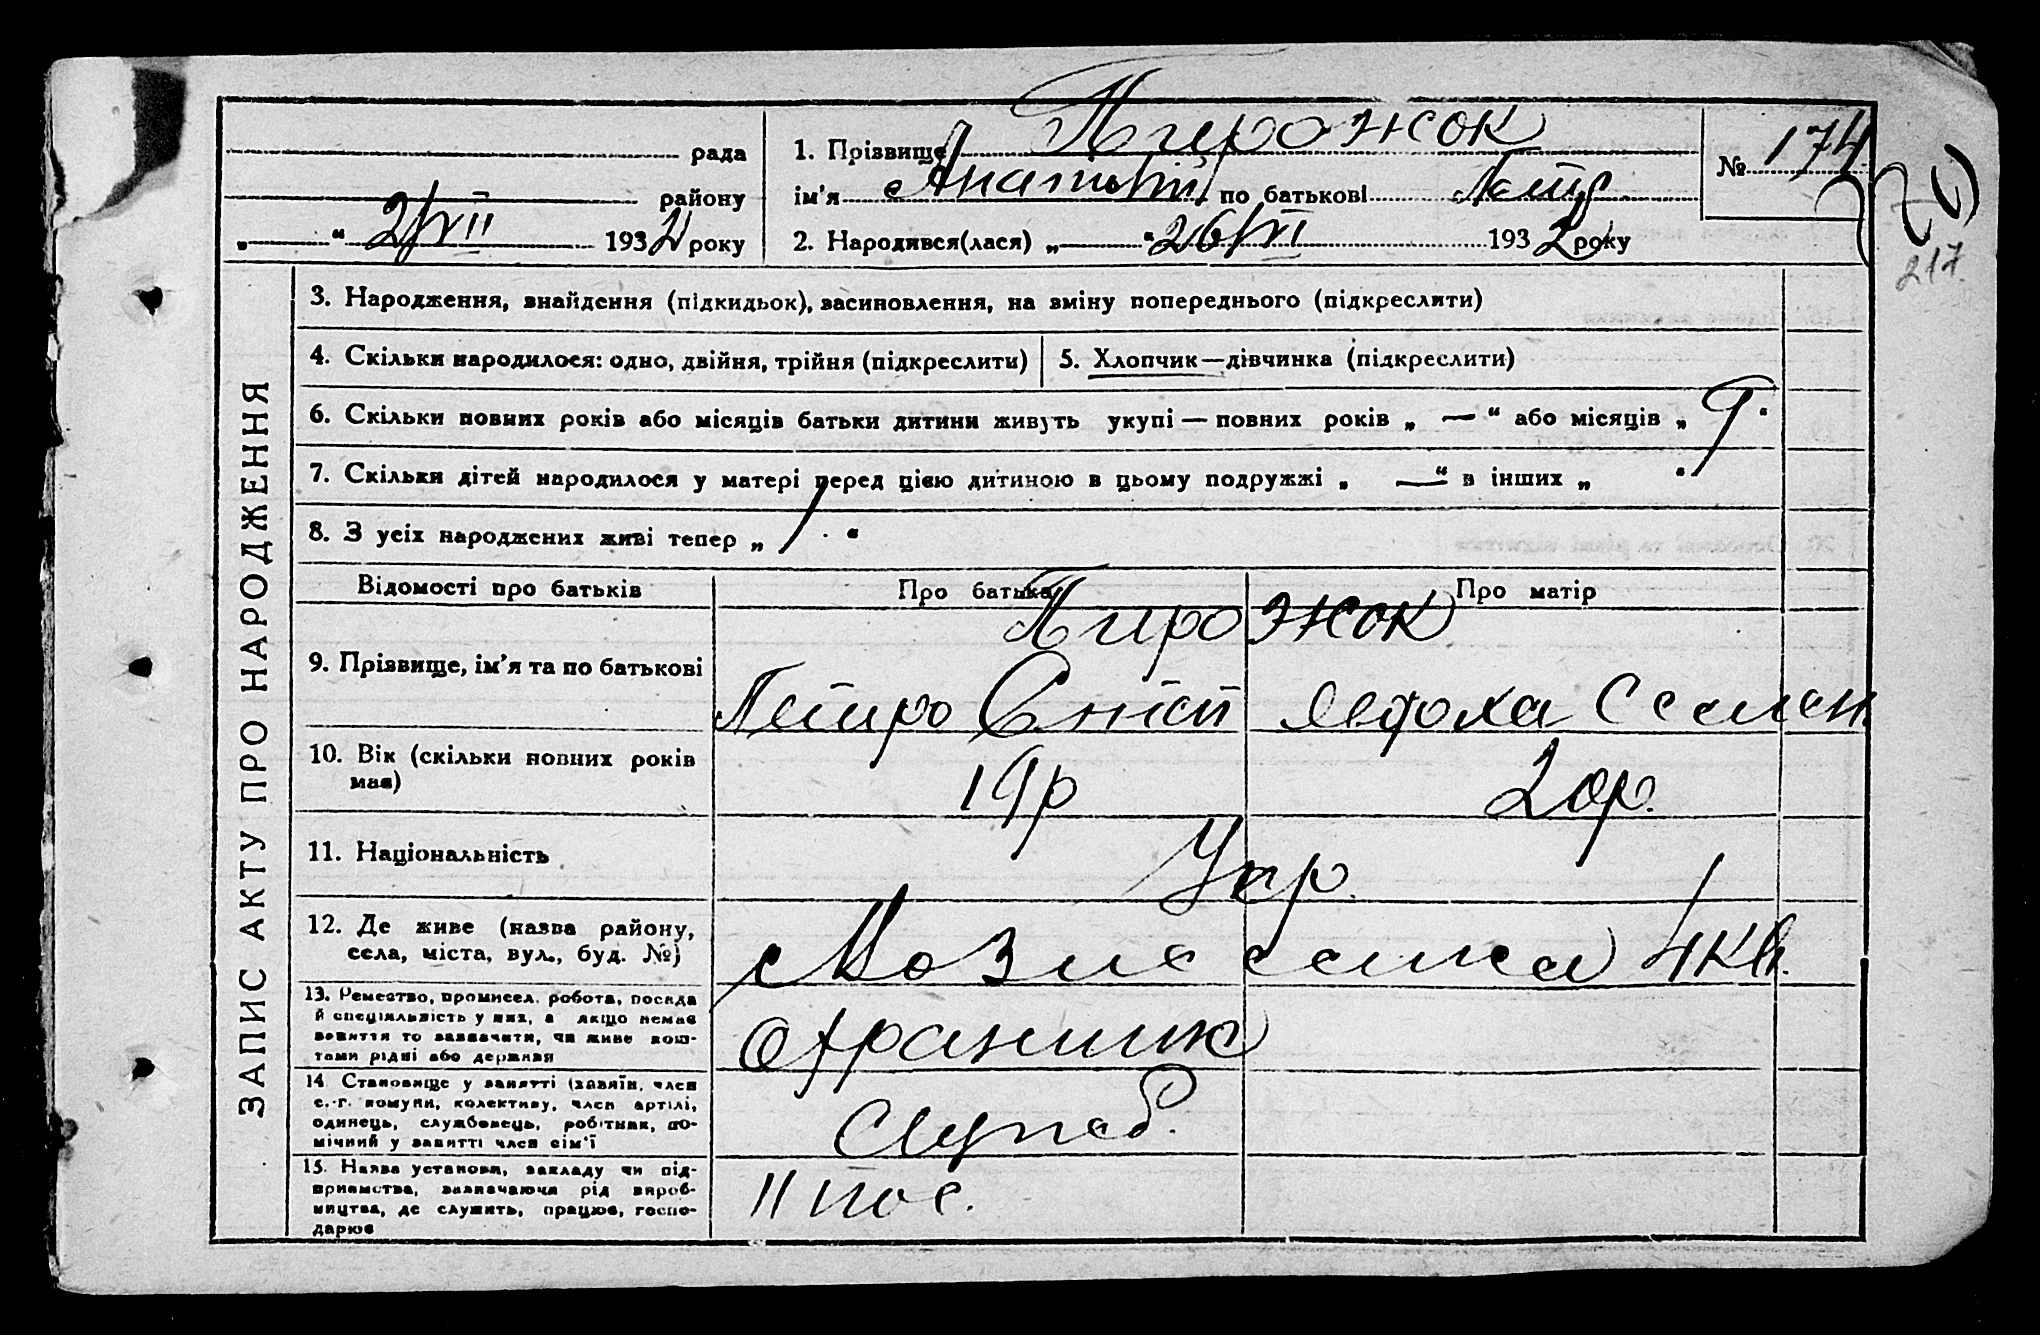 ЗАПИС АКТУ ПРО НАРОДЖЕННЯ
рада
району
„ “ 2/VII 1932 року
1. Прізвище Пирожок
ім'я Анатолій по батькові Петр
2. Народився(лася) „ “ 26/VI 1932 року
№ 174
217.
3. Народження, знайдення (підкидьок), засиновлення, на зміну попереднього (підкреслити)
4. Скільки народилося: одно, двійня, трійня (підкреслити)
5. Хлопчик—дівчинка (підкреслити)
6. Скільки повних років або місяців батьки дитини живуть укупі — повних років „ — “ або місяців „ 9 “
7. Скільки дітей народилося у матері перед цією дитиною в цьому подружжі „ — “ в інших „ “
8. З усіх народжених живі тепер „ 1 “
Відомості про батьків Про батька Про матір
9. Прізвище, ім'я та по батькові
Пирожок
Петро Явдоха Семен.
10. Вік (скільки повних років має)
19р 20р.
11. Національність
Укр.
12. Де живе (назва району, села, міста, вул., буд. №)
4 кв.
13. Ремество, промисел, робота, посада
й спеціяльність у них, а якщо немає
заняття то зазначити, чи живе кош-
тами рідні або держави
Охранник
14. Становище у занятті (хазяїн, член
с.-г. комуни, колективу, член артілі,
одинець, службовець, робітник, по-
мічний у занятті член сім'ї
Служб.
15. Назва установи, закладу чи під-
приємства, зазначаючи рід вироб-
ництва, де служить, працює, госпо-
дарює
11 пос.